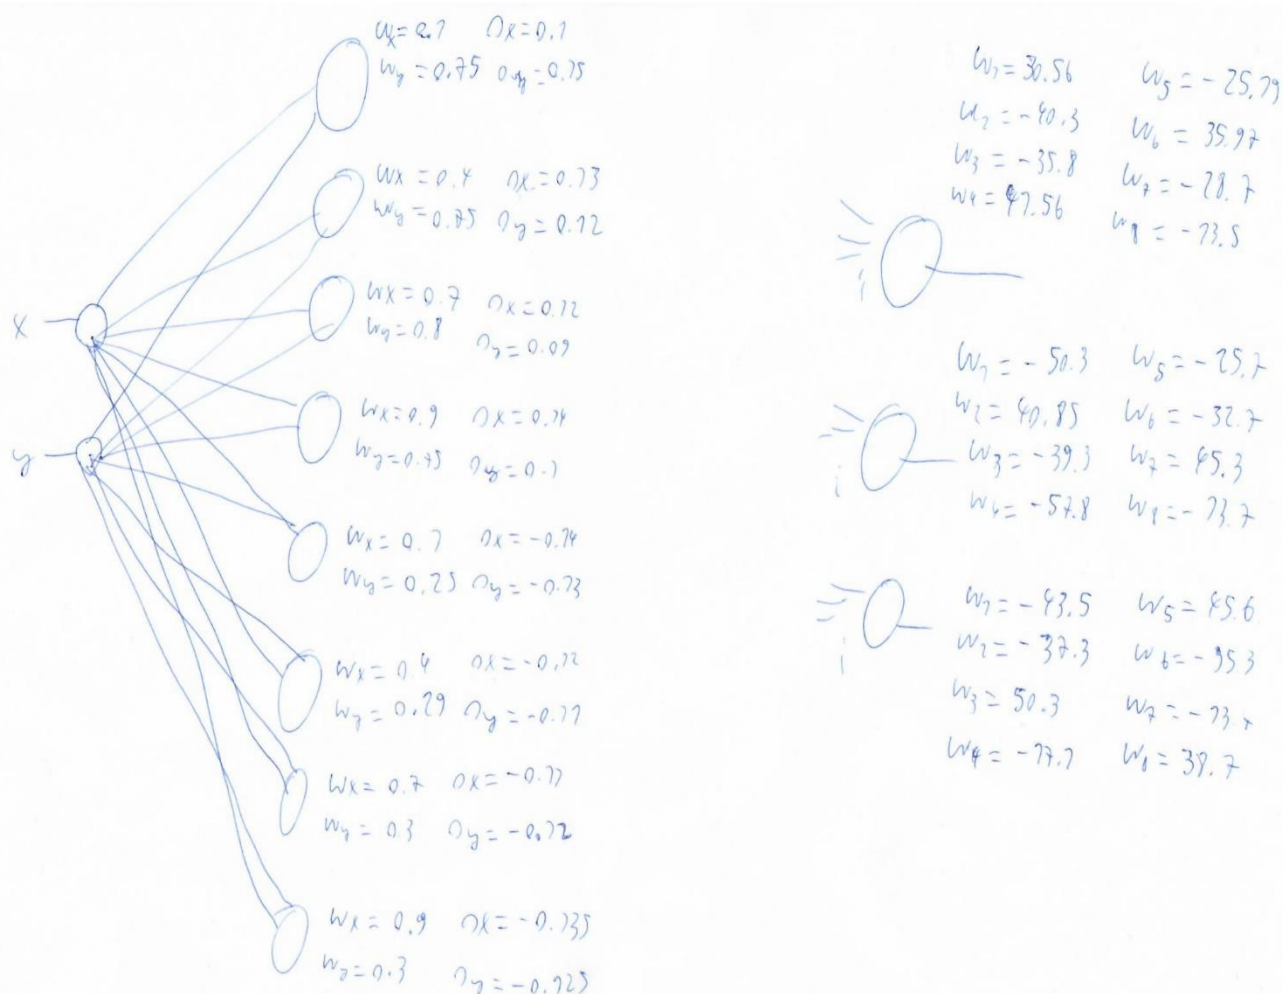 Wx=0.1 sx=0.1
Wy=0.75 sy=0.15
Wx=0.4 sx=0.13
Wy=0.75 sy=0.12
x
Wx=0.7 sx=0.12
Wy=0.8 sy=0.09
y
Wx=0.9 sx=0.14
Wy=0.75 sy=0.1
Wx=0.1 sx=-0.14
Wy=0.25 sy=-0.13
Wx=0.4 sx=-0.12
Wy=0.29 sy=-0.11
Wx=0.7 sx=-0.11
Wy=0.3 sy=-0.12
Wx=0.9 sx=-0.135
Wy=0.3 sy=-0.125
W1=30.56 W5=-25.19
W2=-40.3 W6=35.97
W3=-35.8 W7=-28.1
W4=47.56 W8=-13.5
W1=-50.3 W5=-25.7
W2=40.85 W6=-32.7
W3=-39.3 W7=45.3
W4=-57.8 W8=-13.7
W1=-43.5 W5=45.6
W2=-37.3 W6=
W3=50.3 W7=
W4=-17.1 W8=38.7